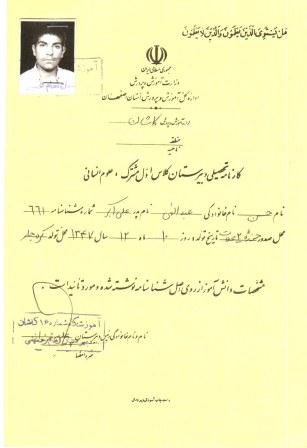 هل یستوی الذین یعلمون والذین لا یعلمون
آموزش
جمهوری اسلامی ایران
وزارت آموزش و پرورش
اداره کل آموزش و پرورش استان اصفهان
اداره آموزش و پرورش کاشان
منطقه
ناحیه
کارنامه تحصیلی دبیرستان کلاس اول مشترک ، علوم انسانی
نام حسن نام خانوادگی عبدالهی نام پدر علی اکبر شماره شناسنامه ۶۶۱
محل صدور حوزه ۲ تاریخ تولد: روز ۱۰ ماه ۱۲ سال ۱۳۴۷ محل تولد
مشخصات دانش آموز از روی اصل شناسنامه نوشته شده و مورد تائید است.
آموزشگاه شماره ۱۶ کاشان
نام و نام خانوادگی رئیس دبیرستان
مهر و امضاء